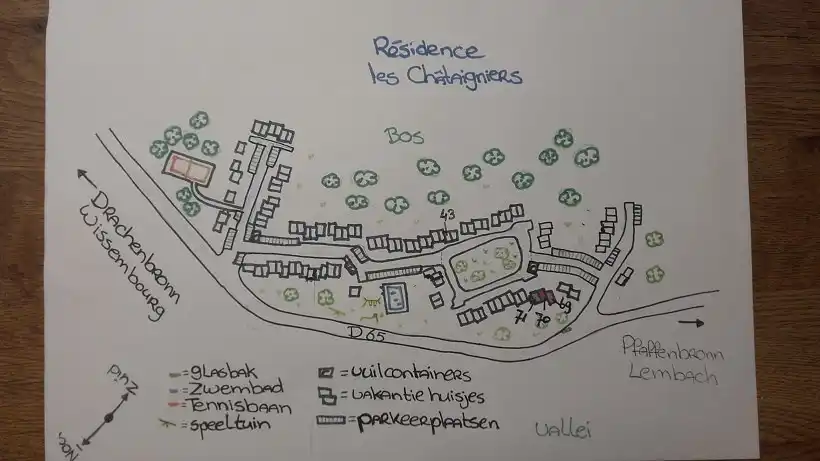 Résidence
les Châtaigniers
Bos
43
DRachenbronn
Wissembourg
69
71 70
D65
Pfaffenbronn
Lembach
Zuid
= glasbak
= Zwembad
= Tennisbaan
= speeltuin
= vuilcontainers
= vakantiehuisjes
= parkeerplaatsen
vallei